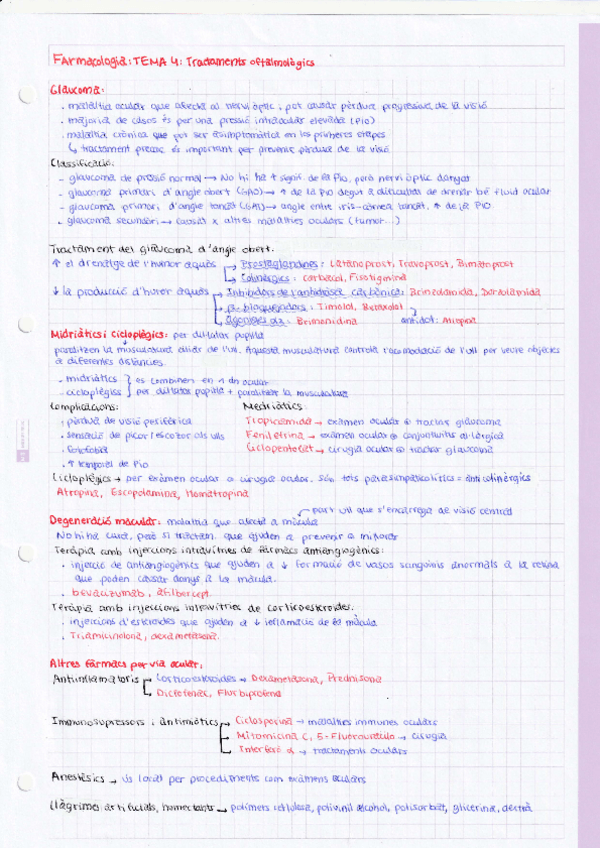 Farmacologia: TEMA 4: Tractaments oftalmològics
Glaucoma:
· malaltia ocular que afecta al nervi òptic i pot causar pèrdua progressiva de la visió
· majoria de casos és per una pressió intraocular elevada (PIO)
· malaltia crònica que pot ser asimptomàtica en les primeres etapes
↳ tractament precoç és important per prevenir pèrdua de la visió
Classificació:
- glaucoma de pressió normal → No hi ha ↑ signif. de la PIO, però nervi òptic danyat
- glaucoma primari d'angle obert (GAO) → ↑ de la PIO degut a dificultat de drenar bé fluid ocular
- glaucoma primari d'angle tancat (GAT) → angle entre iris-còrnea tancat, ↑ de la PIO
- glaucoma secundari → causat x altres malalties oculars (tumor...)
Tractament del glaucoma d'angle obert.
↑ el drenatge de l'humor aquós → Prostaglandines: Latanoprost, Travoprost, Bimatoprost
→ Colinèrgics: carbacol, Fisotigmina
↓ la producció d'humor aquós → Inhibidors de l'anhidrasa carbònica: Brinzolamida, Dorzolamida
→ β-bloquejadors: Timolol, Betaxolol
→ Agonistes α2: Brimonidina antídot: Atropina
Midriàtics i cicloplègics: per dilatar pupil·la
paralitzen la musculatura ciliar de l'ull. Aquesta musculatura controla l'acomodació de l'ull per veure objectes
a diferents distàncies.
- midriàtics } es combinen en 1 dn ocular
- cicloplègics } per dilatar pupil·la + paralitzar la musculatura
Complicacions: Medriàtics:
· pèrdua de visió perifèrica Tropicamida → exàmen ocular o tractar glaucoma
· sensació de picor / escozor als ulls Fenilefrina → exàmen ocular o conjuntivitis al·lèrgica
· fotofòbia Ciclopentolat → cirugia ocular o tractar glaucoma
· ↑ temporal de PIO
Cicloplègics → per exàmen ocular o cirugia ocular. Són tots parasimpaticolítics = anticolinèrgics
Atropina, Escopolamina, Homatropina
→ part ull que s'encarrega de visió central
Degeneració macular: malaltia que afecta a màcula
No hi ha cura, però sí tractam. que ajuden a prevenir o millorar
Teràpia amb injeccions intravítries de fàrmacs antiangiogènics:
· injecció de antiangiogènics que ajuden a ↓ formació de vasos sanguinis anormals a la retina
que poden causar danys a la màcula.
· bevacizumab, aflibercept.
Teràpia amb injeccions intravítries de corticoesteroides.
· injeccions d'esteroides que ajuden a ↓ inflamació de la màcula
· Triamcinolona, dexametasona.
Altres fàrmacs per via ocular:
Antiinflamatoris → Corticoesteroides → Dexametasona, Prednisona
→ Diclofenac, Flurbiprofeno
Immunosupressors i antimiòtics → Ciclosporina → malalties immunes oculars
→ Mitomicina C, 5-Fluorouracilo → cirugia
→ Interferó α → tractaments oculars
Anestèsics → ús local per procediments com exàmens oculars
Llàgrimes artificials, humectants → polímers cel·lulosa, polivinil alcohol, polisorbat, glicerina, dextrà